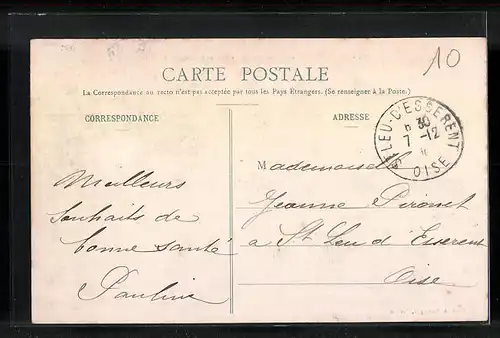 10
CARTE POSTALE
La Correspondance au recto n'est pas acceptée par tous les Pays Étrangers. (Se renseigner à la Poste.)
CORRESPONDANCE
ADRESSE
St LEU-D'ESSERENT
6 30
7 -12
OISE
Meilleurs
souhaits de
bonne santé
Pauline
Mademoiselle
Jeanne Pironet
a St Leu d'Esserent
Oise